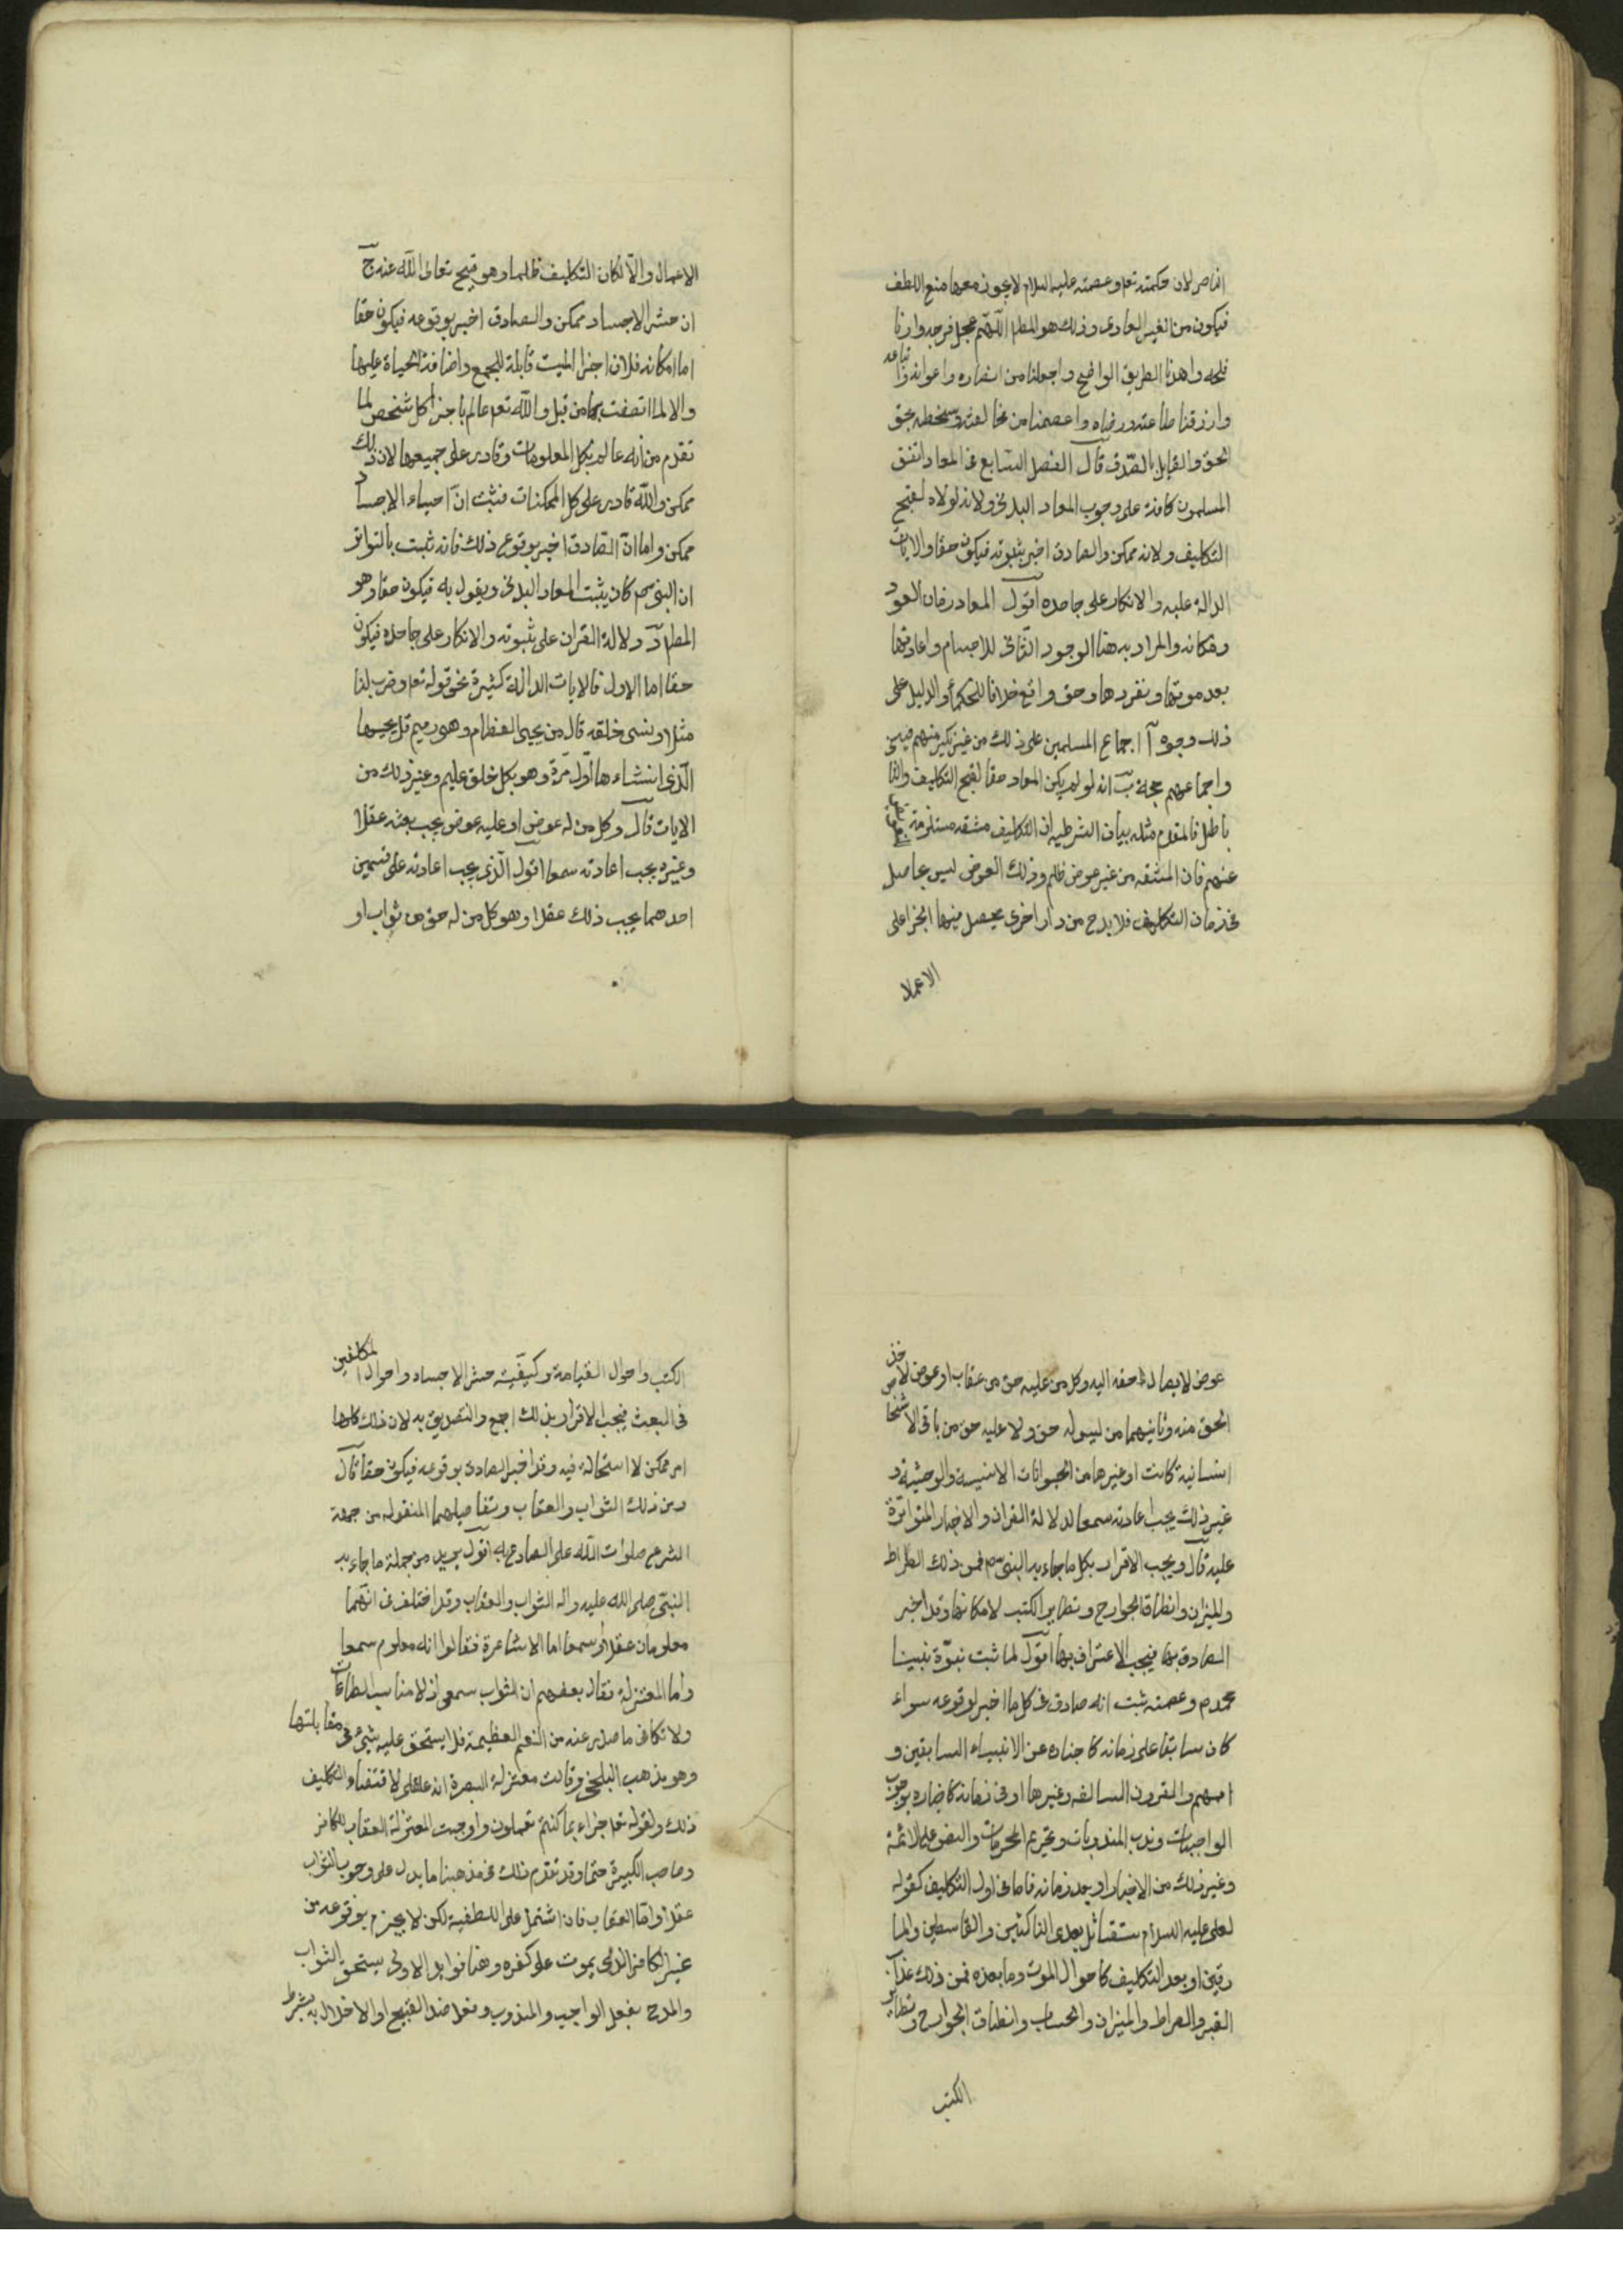 الناصر لان حكمته تعم وعصمته عليه السلام لا يجوز معها منع اللطف
فيكون من الغير المعادى وذلك هو المطم اللهم عجل فرجه وارنا
فلجه واهدنا الطريق الواضح واجعلنا من انصاره واعوانه واتباعه
وارزقنا طاعته ورضاه واعصمنا من مخالفته وسخطه بحق
الحق والقايل بالصدق قال الفصل السابع فى المعاد اتفق
المسلمون كافة على وجوب المعاد البدنى ولانه لولاه لقبح
التكليف ولانه ممكن والصادق اخبر بثبوته فيكون حقا والايات
الدالة عليه والانكار على جاحده اقول المعاد زمان العود
ومكانه والمراد به هنا الوجود الثانى للاجسام واعادتها
بعد موتها وتفردها وحق واقع خلافا للحكماء والدليل على
ذلك وجوه آ اجماع المسلمين على ذلك من غير نكير منهم فيه
واجماعهم حجة ب انه لو لم يكن المعاد حقا لقبح التكليف والتا
باطل فالمقدم مثله بيان الشرطيه ان التكليف مشقه مستلزمة
عنهم فان المشقه من غير عوض ظلم وذلك العوض ليس بحاصل
فى زمان التكليف فلا بد ح من دار اخرى يحصل فيها الجزا على
الاعمال
الاعمال والا لكان التكليف ظلما وهو قبيح تعالى الله عنه ج
ان حشر الاجساد ممكن والصادق اخبر بوقوعه فيكون حقا
اما امكانه فلان اجزا الميت قابلة للجمع وافاضة الحياة عليها
والا لما اتصفت بها من قبل والله تعم عالم باجزا كل شخص لما
تقدم من انه عالم بكل المعلومات وقادر على جميعها لان ذلك
ممكن والله قادر على كل الممكنات فثبت ان احياء الاجساد
ممكن واما ان الصادق اخبر بوقوع ذلك فانه ثبت بالتواتر
ان النبى صم كان يثبت المعاد البدنى ويقول به فيكون حقا وهو
المطم د دلالة القران على ثبوته والانكار على جاحده فيكون
حقا اما الاول فالايات الدالة كثيرة نحو قوله تعم وضرب لنا
مثلا ونسى خلقه قال من يحيى العظام وهو رميم قل يحييها
الذى انشاءها اول مرة وهو بكل خلق عليم وغير ذلك من
الايات قال وكل من له عوض او عليه عوض يجب بعثه عقلا
وغيره يجب اعادته سمعا اقول الذى يجب اعادته على قسمين
احدهما يجب ذلك عقلا وهو كل من له حق من ثواب او
عوض لايصال حقه اليه وكل من عليه حق من عقاب او عوض لاخذ
الحق منه وثانيهما من ليس له حق ولا عليه حق من باقى الاشخاص
انسانية كانت او غيرها من الحيوانات الانيسة والوحشية و
غير ذلك يجب اعادته سمعا لدلالة القران والاخبار المتواترة
عليه قال ويجب الاقرار بكل ما جاء به النبى صم فمن ذلك الصراط
والميزان وانطاق الجوارح وتطاير الكتب لامكانها وقد اخبر
الصادق بها فيجب الاعتراف بها اقول لما ثبت نبوة نبينا
محمد م وعصمته ثبت انه صادق فى كل ما اخبر لوقوعه سواء
كان سابقا على زمانه كاخباره عن الانبياء السابقين و
اممهم والقرون السالفه وغيرها او فى زمانه كاخباره بوجوب
الواجبات وندب المندوبات وتحريم المحرمات والنص على الائمة
وغير ذلك من الاخبار او بعد زمانه فاما فى اول التكليف كقوله
لعلى عليه السلام ستقاتل بعدى الناكثين والقاسطين والما
رقين او بعد التكليف كاحوال الموت وما بعده فمن ذلك عذاب
القبر والصراط والميزان والحساب وانطاق الجوارح وتطاير
الكتب
الكتب واحوال القيامة وكيفية حشر الاجساد واحوال المكلفين
فى البعث فيجب الاقرار بذلك اجمع والتصديق به لان ذلك كلها
امر ممكن لا استحالة فيه وقد اخبر الصادق بوقوعه فيكون حقا قال
ومن ذلك الثواب والعقاب وتفاصيلهما المنقوله من جهة
الشرع صلوات الله على الصادع به اقول يريد من جملة ما جاء به
النبى صلى الله عليه واله الثواب والعقاب وقد اختلف فى انهما
معلومان عقلا او سمعا اما الاشاعرة فقالوا انه معلوم سمعا
واما المعتزلة فقال بعضهم ان الثواب سمعى اذ لا مناسب الطاعات
ولا تكافى ما صدر عنه من النعم العظيمة فلا يستحق عليه شئ فى مقابلتها
وهو مذهب البلخى وقالت معتزلة البصرة انه عقلى لاقتضاء التكليف
ذلك ولقوله تعم جزاء بما كنتم تعملون واوجبت المعتزلة العقاب للكافر
وصاحب الكبيرة حتما وقد تقدم ذلك فى مذهبنا ما يدل على وجوب الثواب
عقلا واما العقاب فان اشتمل على اللطفية لكن لا يجزم بوقوعه من
غير الكافر الذى يموت على كفره وهنا فوايد الاولى يستحق الثواب
والمدح بفعل الواجب والمندوب وفعل ضد القبيح او الاخلال به بشرط